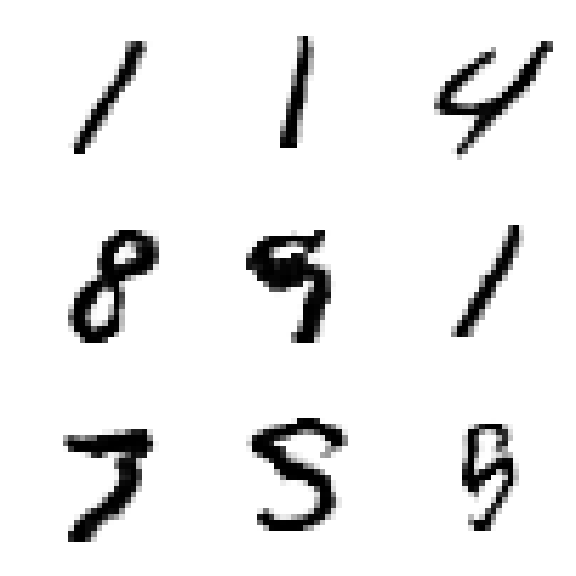 1 1 4
8 9 1
7 5